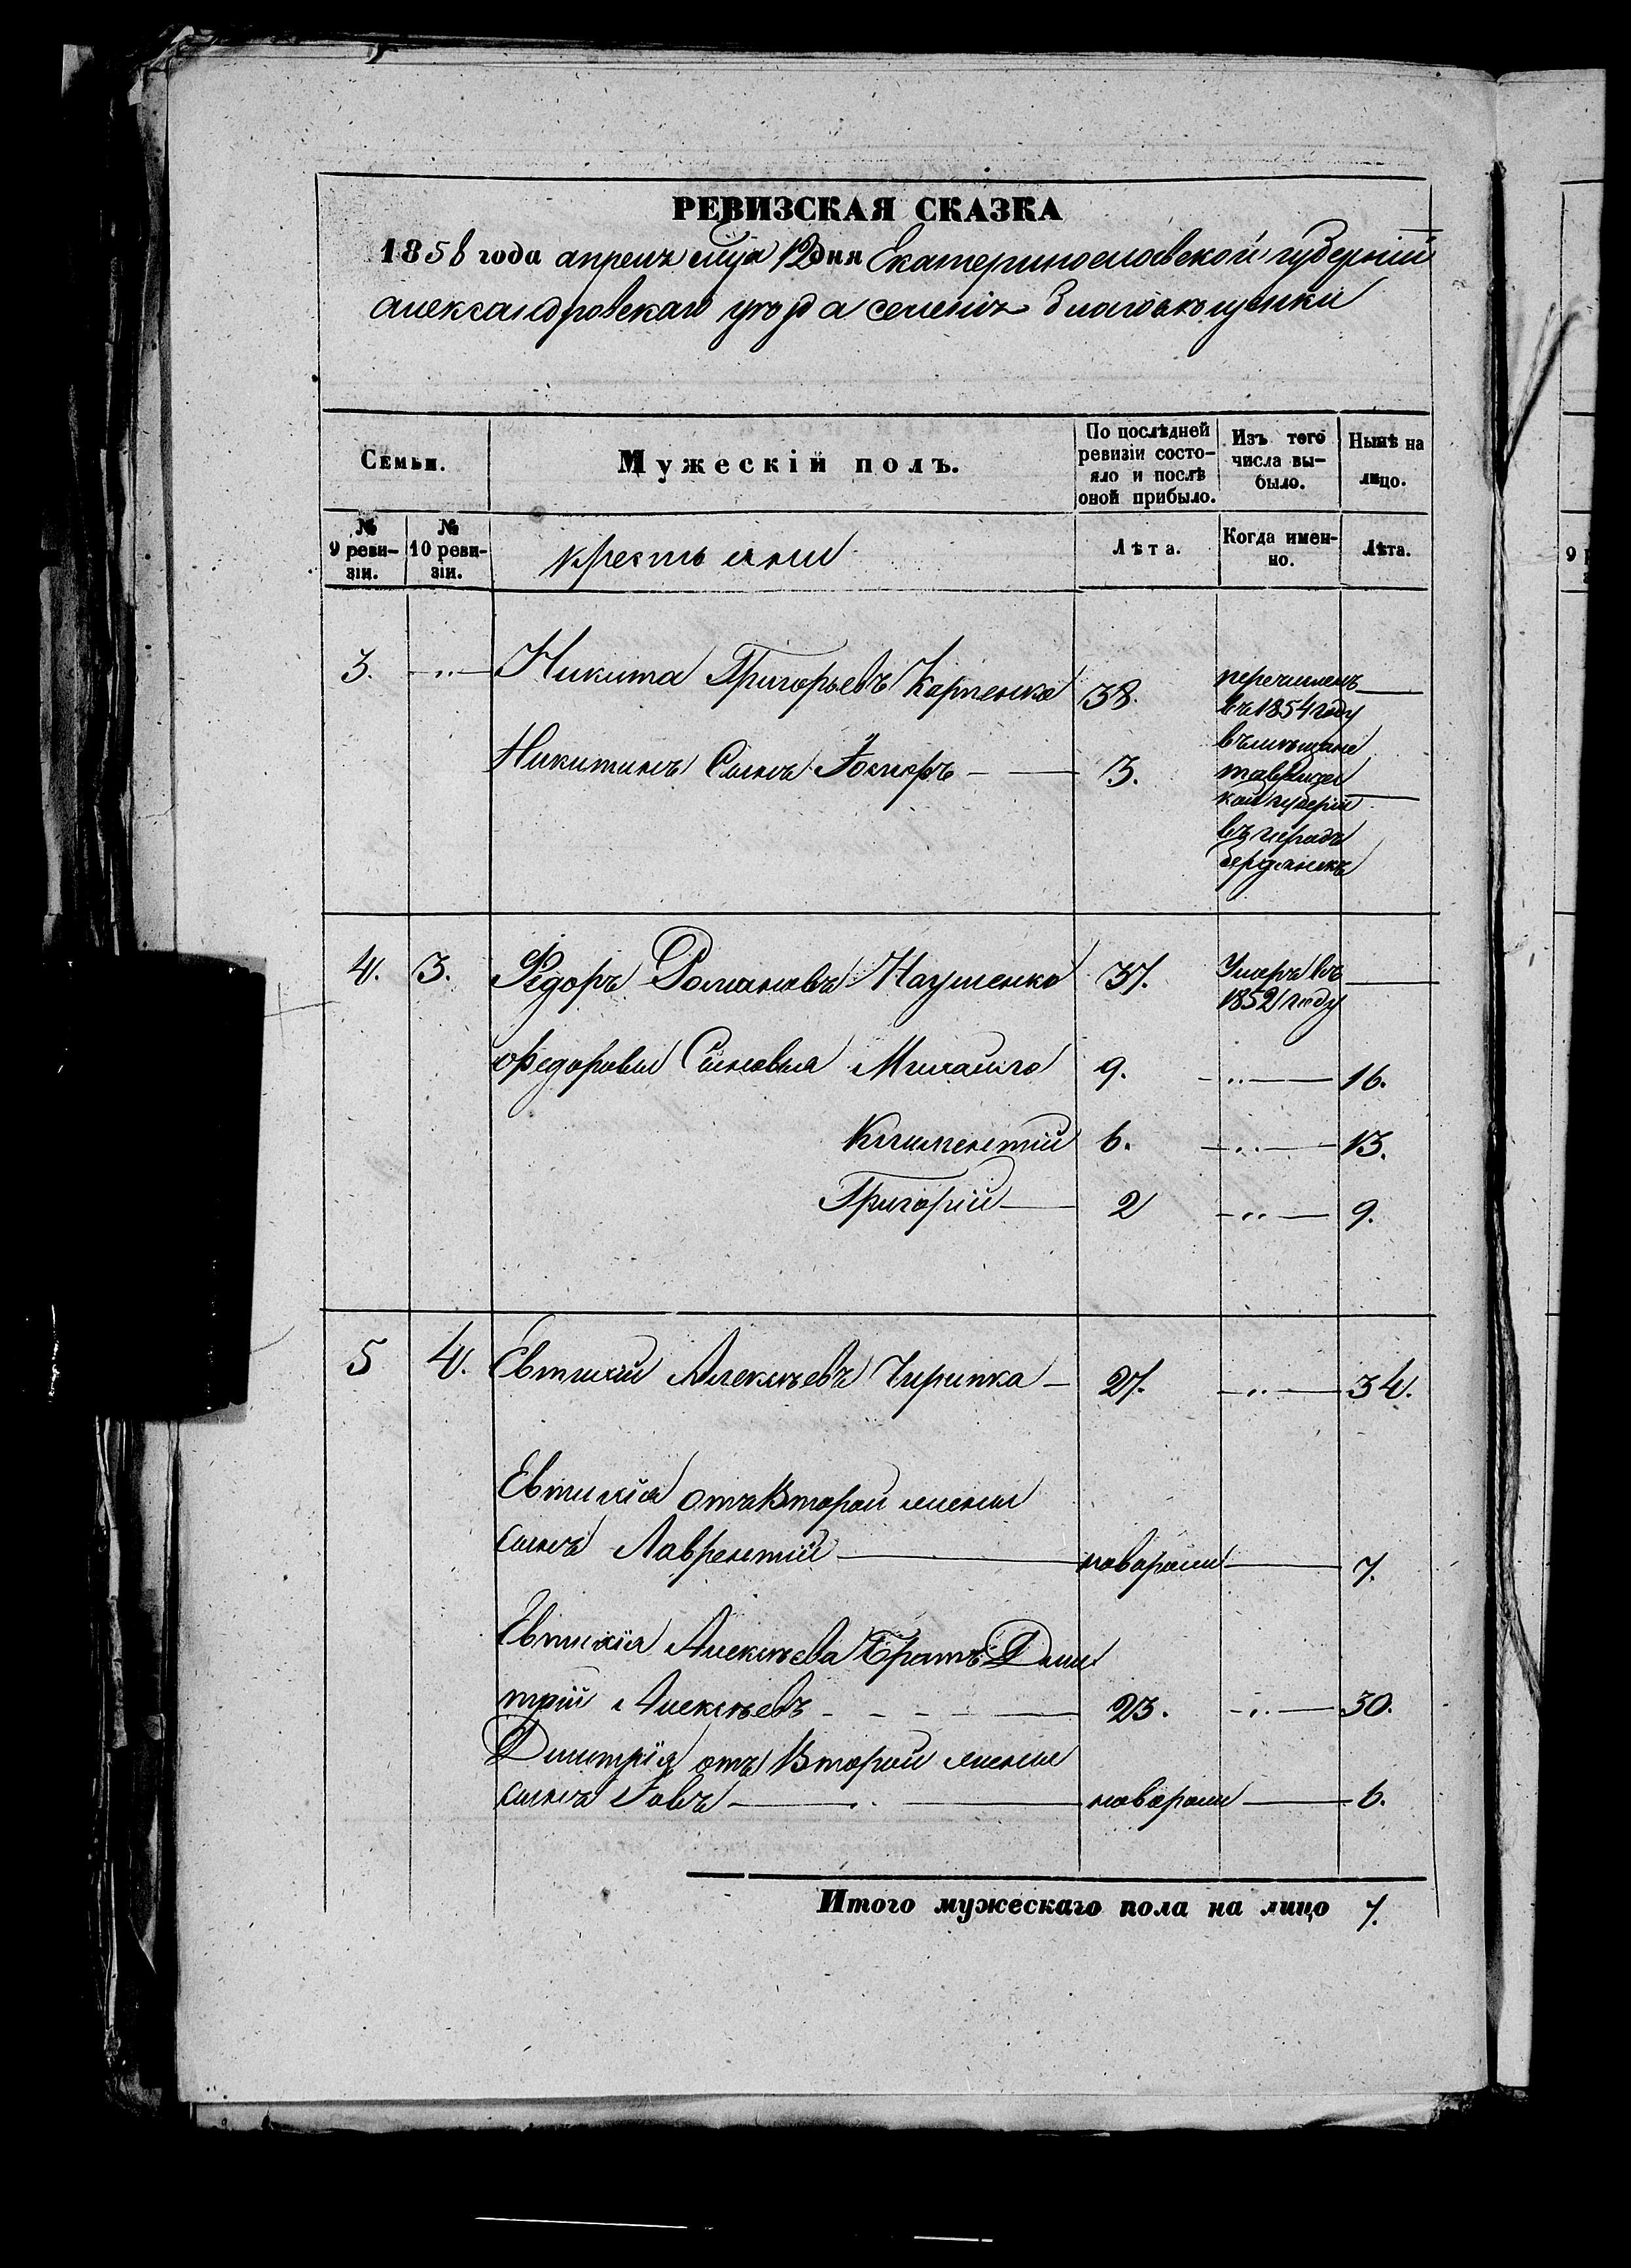 РЕВИЗСКАЯ СКАЗКА
1858 года апреля мца 12 дня Екатеринославской губерніи
александровскаго уезда селенія Благовещенки
Семьи.
Мужескій полъ.
По послѣдней ревизіи состо-
яло и послѣ оной прибыло.
Изъ того числа вы-
было.
Нынѣ на лицо.
№ 9 реви-
зіи.
№ 10 реви-
зіи.
крестьяни
Лѣта.
Когда имен-
но.
Лѣта.
3. Никита Григорьевъ Карпенко 38.
перечисленъ
въ 1854 году
въ мещане
тавричес
кой губерніи
въ городъ
бердянскъ
Никитинъ Сынъ 3.
4. 3. Фѣдоръ Романовъ Науменко 37. Умеръ въ
1852 году
Федоровы Сыновья Михайло 9. 16.
Климентій 6. 13.
Григорій 2 9.
5 4. Евтихій Алексѣевъ Чирипка 27. 34.
Евтихія отъ Второй жены
сынъ Лаврентій 7.
Евтихія Алексѣева Братъ Дми
трій Алексѣевъ 23. 30.
Дмитрія отъ Второй жены
сынъ Іовъ 6.
Итого мужескаго пола на лицо 7.